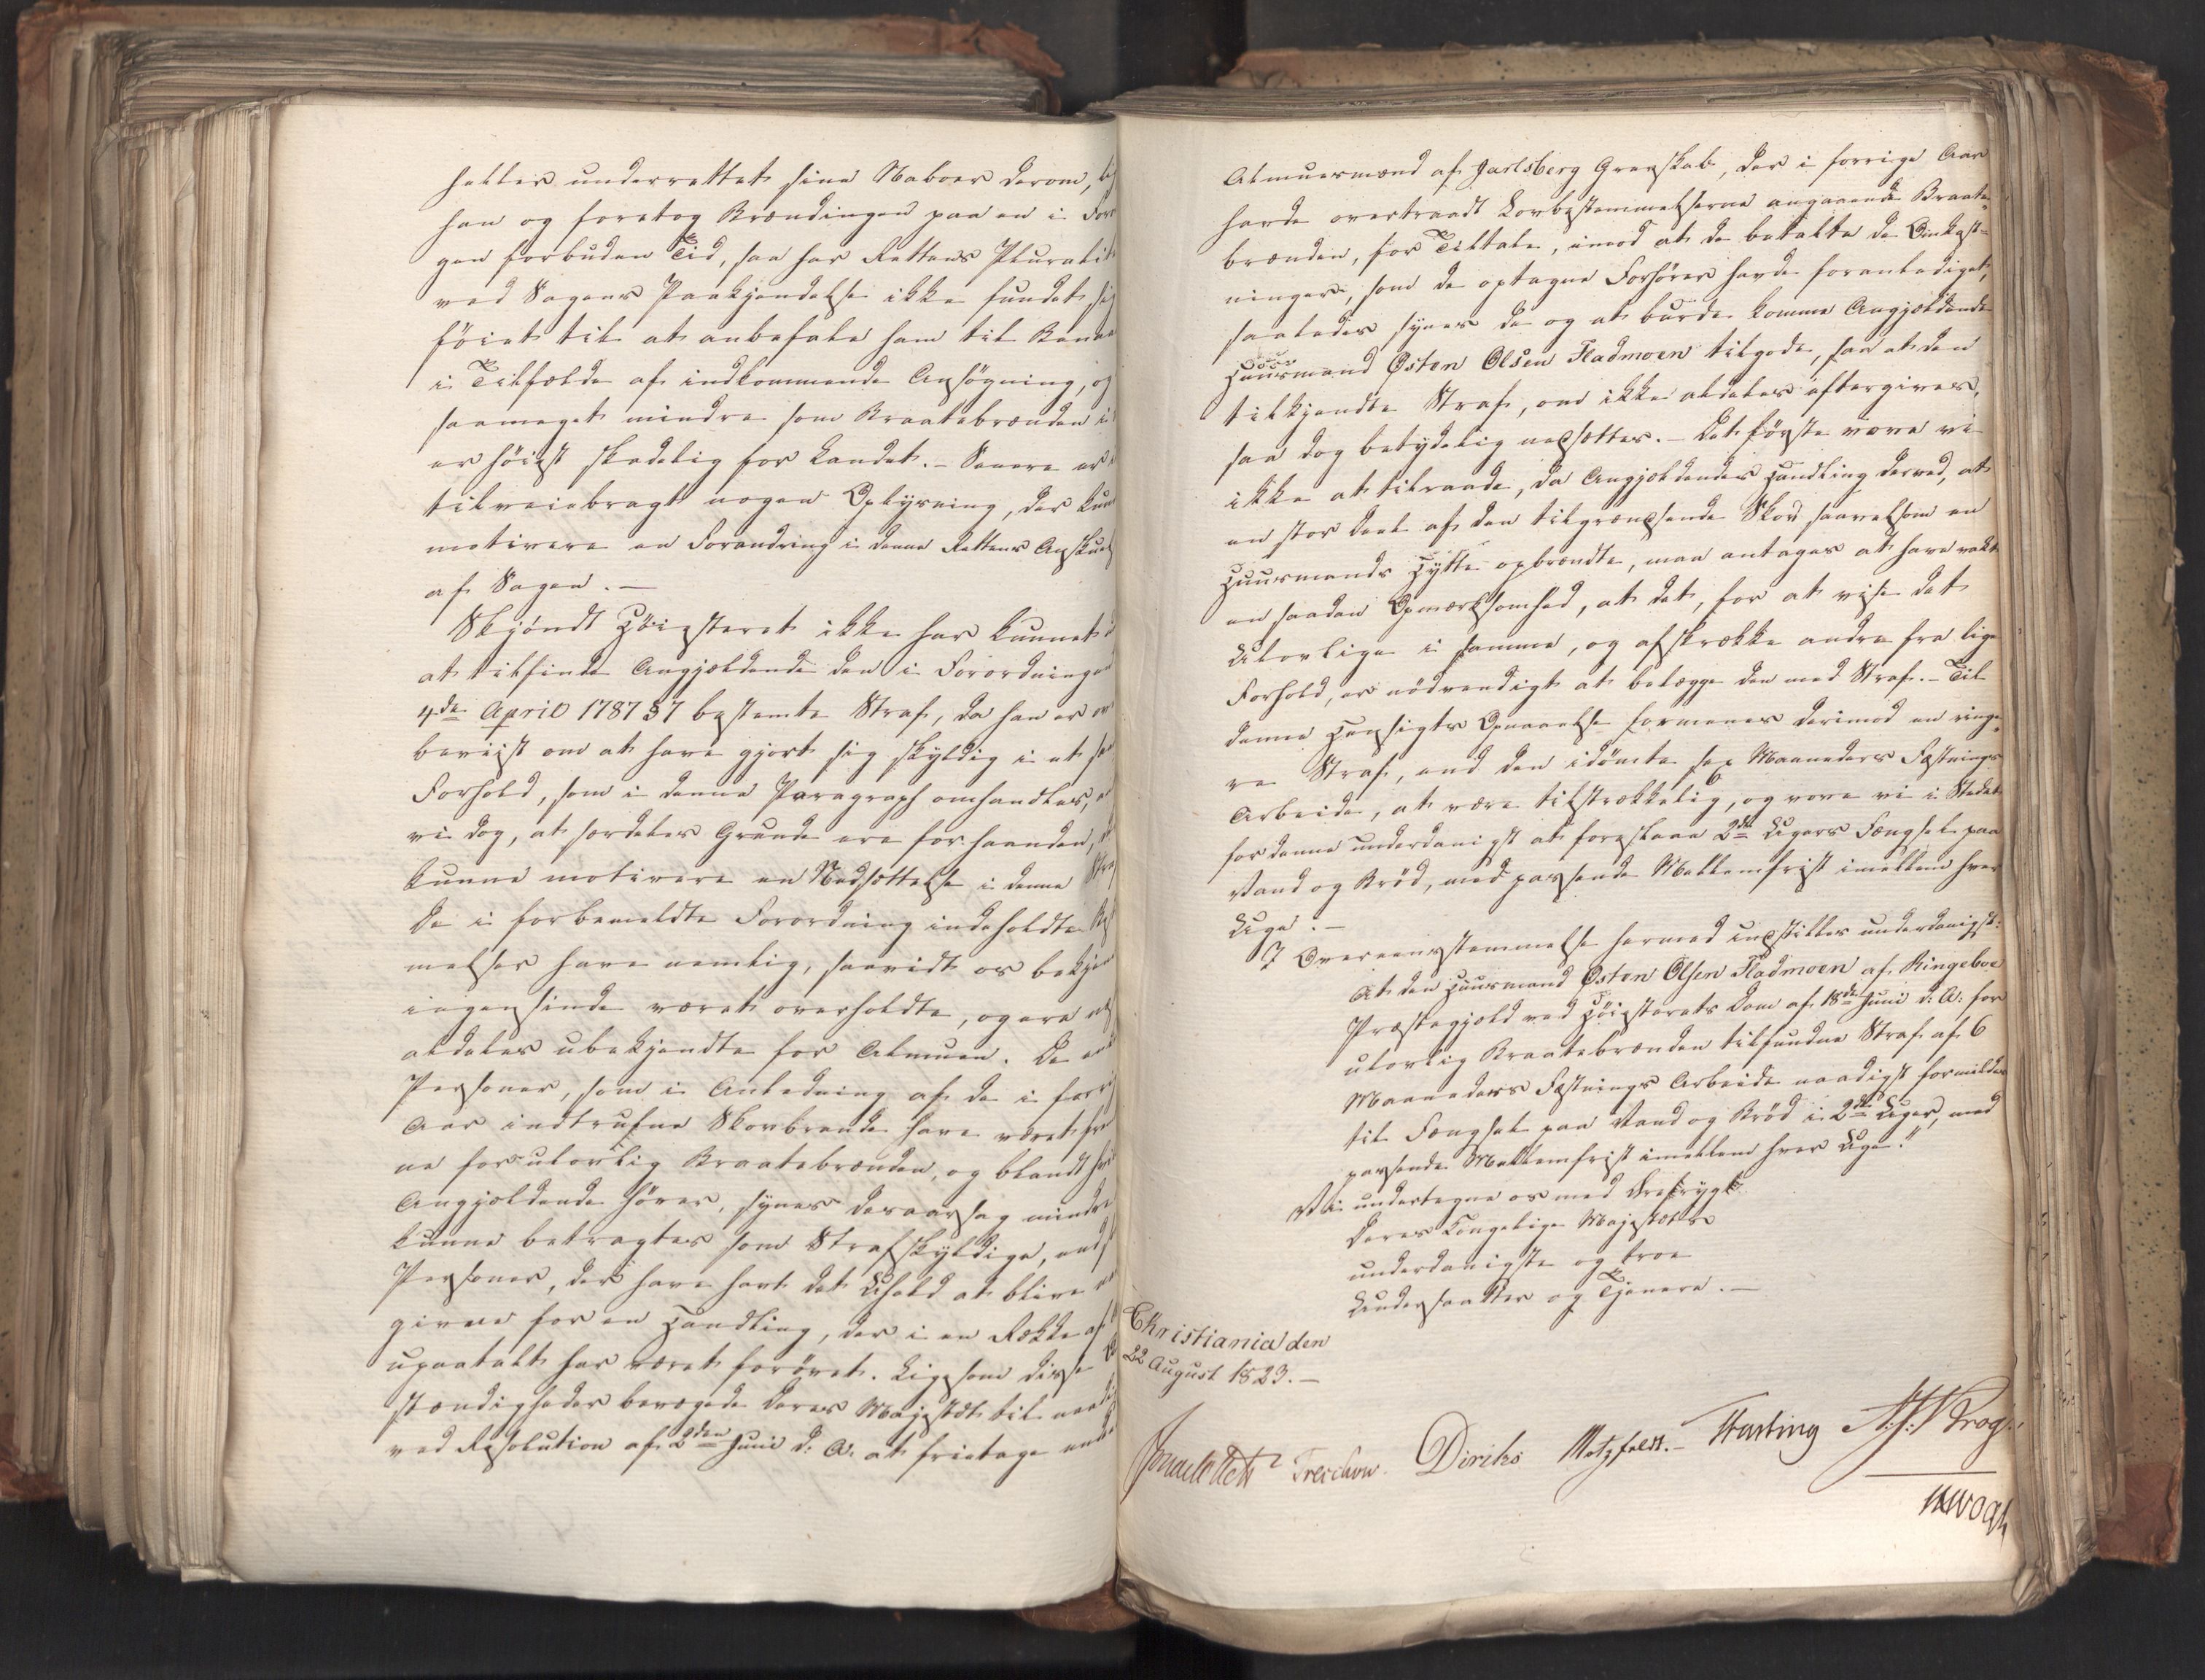 heller underrettet sine Naboer derom,
han og foretog Brændingen paa en i
gen forbuden Tid, saa har Rettens Pluralit
ved Sagens Paakjendelse ikke fundet sig
föiet til at anbefale ham til Benaa
i Tilfælde af indkommende Ansögning, og
saameget mindre som Braatebrænden i
er höist skadelig for Landet. – Senere er
tilveiebragt nogen Oplysning, der kun
motivere en Forandring i denne Rettens Anskuel
af Sagen. –
Skjöndt Höiesteret ikke har kunnet
at tilfinde Angjældende den i Forordningen
4de April 1787 § 7 bestemte Straf, da han er
beviist om at have gjort sig skyldig i et
Forhold, som i denne Paragraph omhandles,
vi dog, at særdeles Grunde ere forhaanden,
kunne motivere en Nedsættelse i denne Straf
De i forbemeldte Forordning indeholdte
melser have nemlig, saavidt os bekjen
ingensinde været overholdte, og ere
aldeles ubekjendte for Almuen. De
Personer, som i Anledning af de i forri
Aar indtrufne Skovbrande have været
ne for ulovlig Braatebrænden, og blandt
Angjældende hörer, synes desaarsag mindre
kunne betragtes som Strafskyldige, end
Personer, der have havt det Uheld at blive
givne for en Handling, der i en Række af
upaatalt har været forövet. Ligesom disse
stændigheder bevægede Deres Majestæt til
ved Resolution af 2den Juni d: A: at fritage
Almuesmænd af Jarlsberg Grevskab, der i forrige Aar
havde overtraadt Lovbestemmelserne angaaende Braate-
brænden, for Tiltale, imod at de betalte de Omkost-
ninger, som de optagne Forhörer havde foranlediget,
saaledes synes de og at burde komme Angjældende
Huusmand Østen Olsen Fladmoen tilgode, saa at den
tilkjendte Straf, om ikke aldeles eftergives,
saa dog betydelig nedsættes. – Det förste vove vi
ikke at tilraade, da Angjældendes Handling derved, at
en stor Deel af den tilgrændsende Skov saavelsom en
Huusmands Hytte opbrændte, maa antages at have vakt
en saadan Opmærksomhed, at det, for at vise det
Ulovlige i samme, og afskrække andre fra lige
Forhold, er nödvendigt at belægge den med Straf. – Til
denne Hensigts Opnaaelse formenes derimod en ringe-
re Straf, end den idömte sex Maaneders Fæstnings
Arbeide, at være tilstrækkelig, og vove vi i Stedet
for denne underdanigst at foreslaae 2de Ugers Fængsel paa
Vand og Bröd, med passende Mellemfrist imellem hver
Uge. –
I Overeensstemmelse hermed indstilles underdanigst:
At den Huusmand Østen Olsen Fladmoen af Ringeboe
Præstegjeld ved Höiesterets Dom af 18de Juni d: A: for
ulovlig Braatebrænden tilfundne Straf af 6
Maaneders Fæstnings Arbeide naadigst formildes
til Fængsel paa Vand og Bröd i 2de Uger, med
passende Mellemfrist imellem hver Uge."
Vi undertegne os med Ærefrygt
Deres Kongelige Majestæts
underdanigste og troe
Undersaatter og Tjenere. –
Christiania den
22 August 1823. –
Treschow. Diriks Motzfeldt. – Fasting